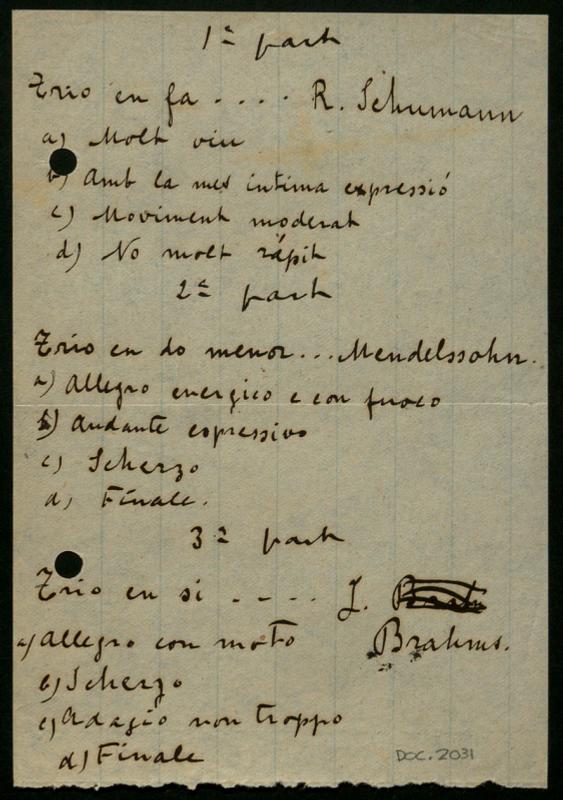 1ª part
Trio en fa .... R. Schumann
a) Molt viu
b) Amb la mes intima expressió
c) Moviment moderat
d) No molt rápit
2ª part
Trio en do menor... Mendelssohn.
a) Allegro energico e con fuoco
b) Andante espressivo
c) Scherzo
d) Finale.
3ª part
Trio en si .... J.
a) Allegro con moto Brahms.
b) Scherzo
c) Adagio non troppo
d) Finale
DOC. 2031